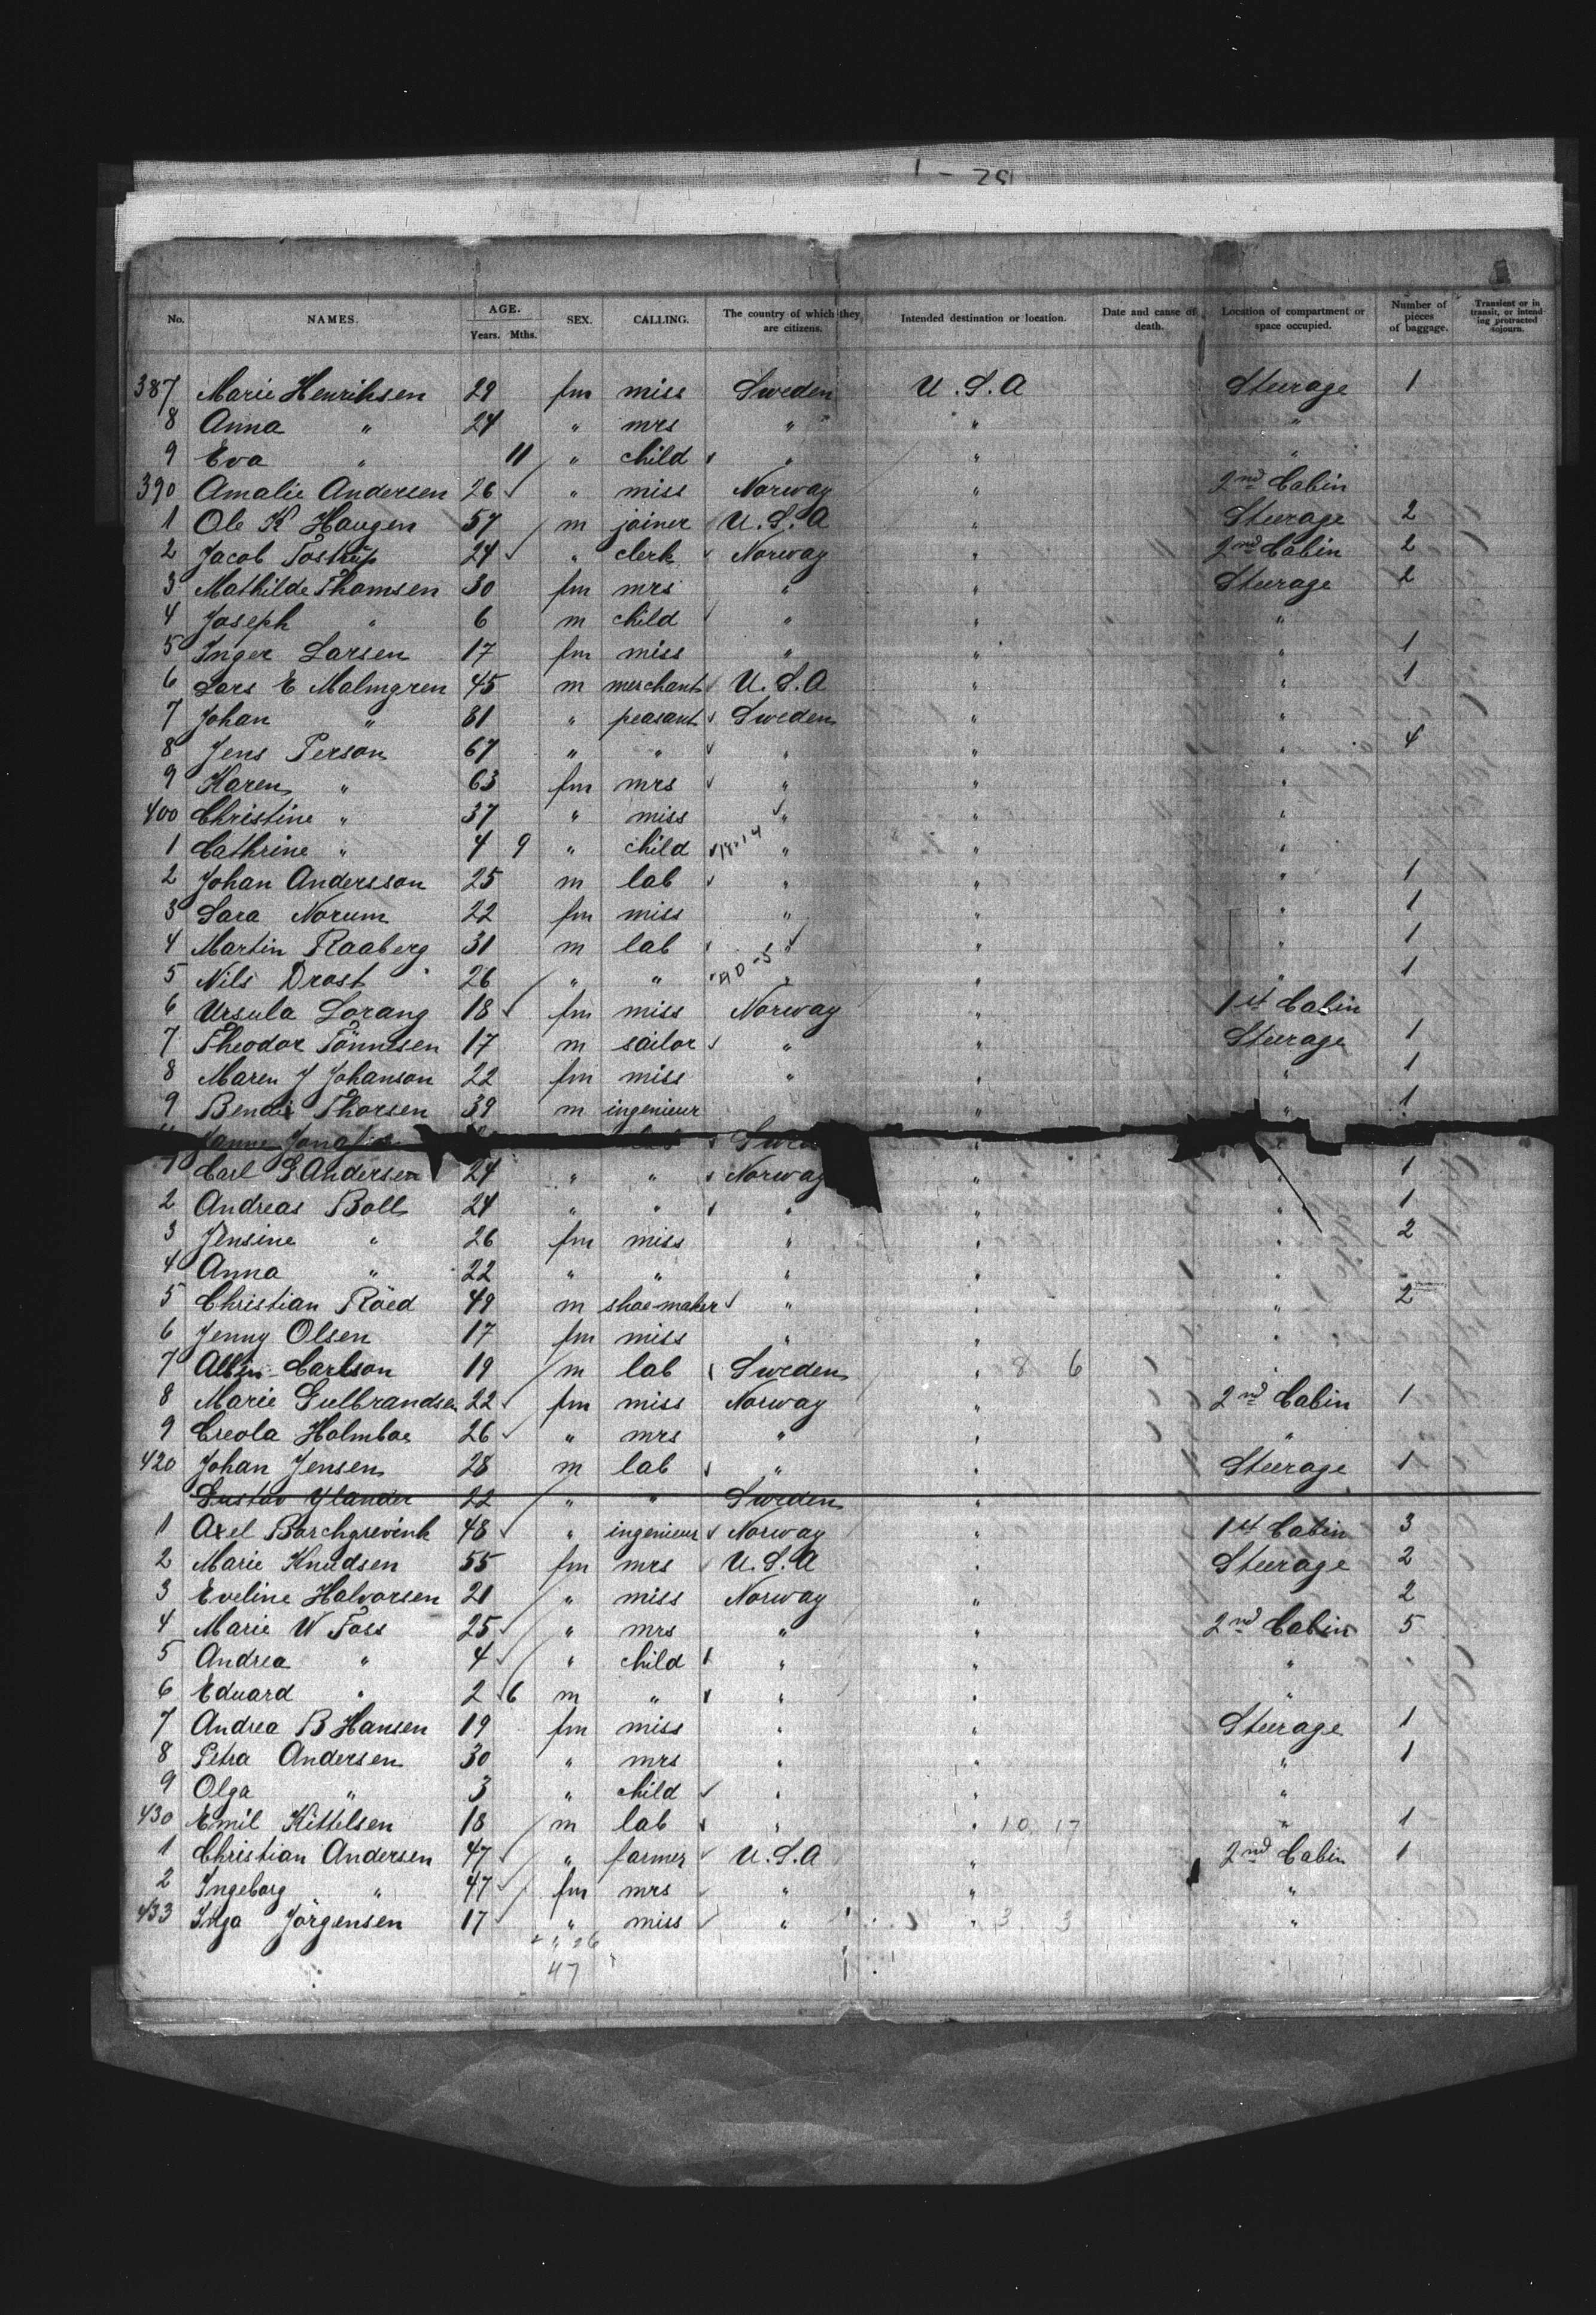 1 - 29
No. NAMES. AGE. Years. Mths. SEX. CALLING. The country of which they are citizens. Intended destination or location. Date and cause of death. Location of compartment or space occupied. Number of pieces of baggage. Transient or in transit, or intending protracted sojourn.
387 Marie Henriksen 29 fm miss Sweden U.S.A Steerage 1
8 Anna " 24 " mrs " " "
9 Eva " 11 " child " " "
390 Amalie Andersen 26 " miss Norway " 2nd Cabin
1 Ole K Haugen 57 m joiner U.S.A " Steerage 2
2 Jacob Tostrup 24 " clerk Norway " 2nd Cabin 2
3 Mathilde Thomsen 30 fm mrs " " Steerage 2
4 Joseph " 6 m child " " "
5 Inger Larsen 17 fm miss " " " 1
6 Lars E Malmgren 45 m merchant U.S.A " " 1
7 Johan " 81 " peasant Sweden " "
8 Jens Person 67 " " " " " 4
9 Karen " 63 fm mrs " " "
400 Christine " 37 " miss " " "
1 Cathrine " 4 9 " child " " "
2 Johan Andersson 25 m lab " " " 1
3 Sara Norum 22 fm miss " " " 1
4 Martin Raaberg 31 m lab " " " 1
5 Nils Drost 26 " " " " " 1
6 Ursula Lorang 18 fm miss Norway " 1st Cabin
7 Theodor Tönnesen 17 m sailor " " Steerage 1
8 Maren J Johanson 22 fm miss " " " 1
9 Thorsen 39 m ingenieur " " 1
1 Carl G Andersen 24 " " Norway " " 1
2 Andreas Boll 24 " " " " " 1
3 Jensine " 26 fm miss " " " 2
4 Anna " 22 " " " " "
5 Christian Röed 49 m shoe-maker " " " 2
6 Jenny Olsen 17 fm miss " " "
7 Albin Carlson 19 m lab Sweden " 8 6 "
8 Marie Gulbrandsen 22 fm miss Norway " 2nd Cabin 1
9 Creola Holmboe 26 " mrs " " "
420 Johan Jensen 28 m lab " " Steerage 1
Gustav Ylander 22 " " Sweden "
1 Axel Borchgrevink 48 " ingenieur Norway " 1st Cabin 3
2 Marie Knudsen 55 fm mrs U.S.A " Steerage 2
3 Eveline Halvorsen 21 " miss Norway " 2
4 Marie W Foss 25 " mrs " " 2nd Cabin 5
5 Andrea " 4 " child " " "
6 Eduard " 2 6 m " " " "
7 Andrea B Hansen 19 fm miss " " Steerage 1
8 Petra Andersen 30 " mrs " " " 1
9 Olga " 3 " child " " "
430 Emil Kittelsen 18 m lab " " 10 17 " 1
1 Christian Andersen 47 " farmer U.S.A " 2nd Cabin 1
2 Ingeborg " 47 fm mrs " " "
433 Inga Jörgensen 17 " miss " " 3 3 "
26
47